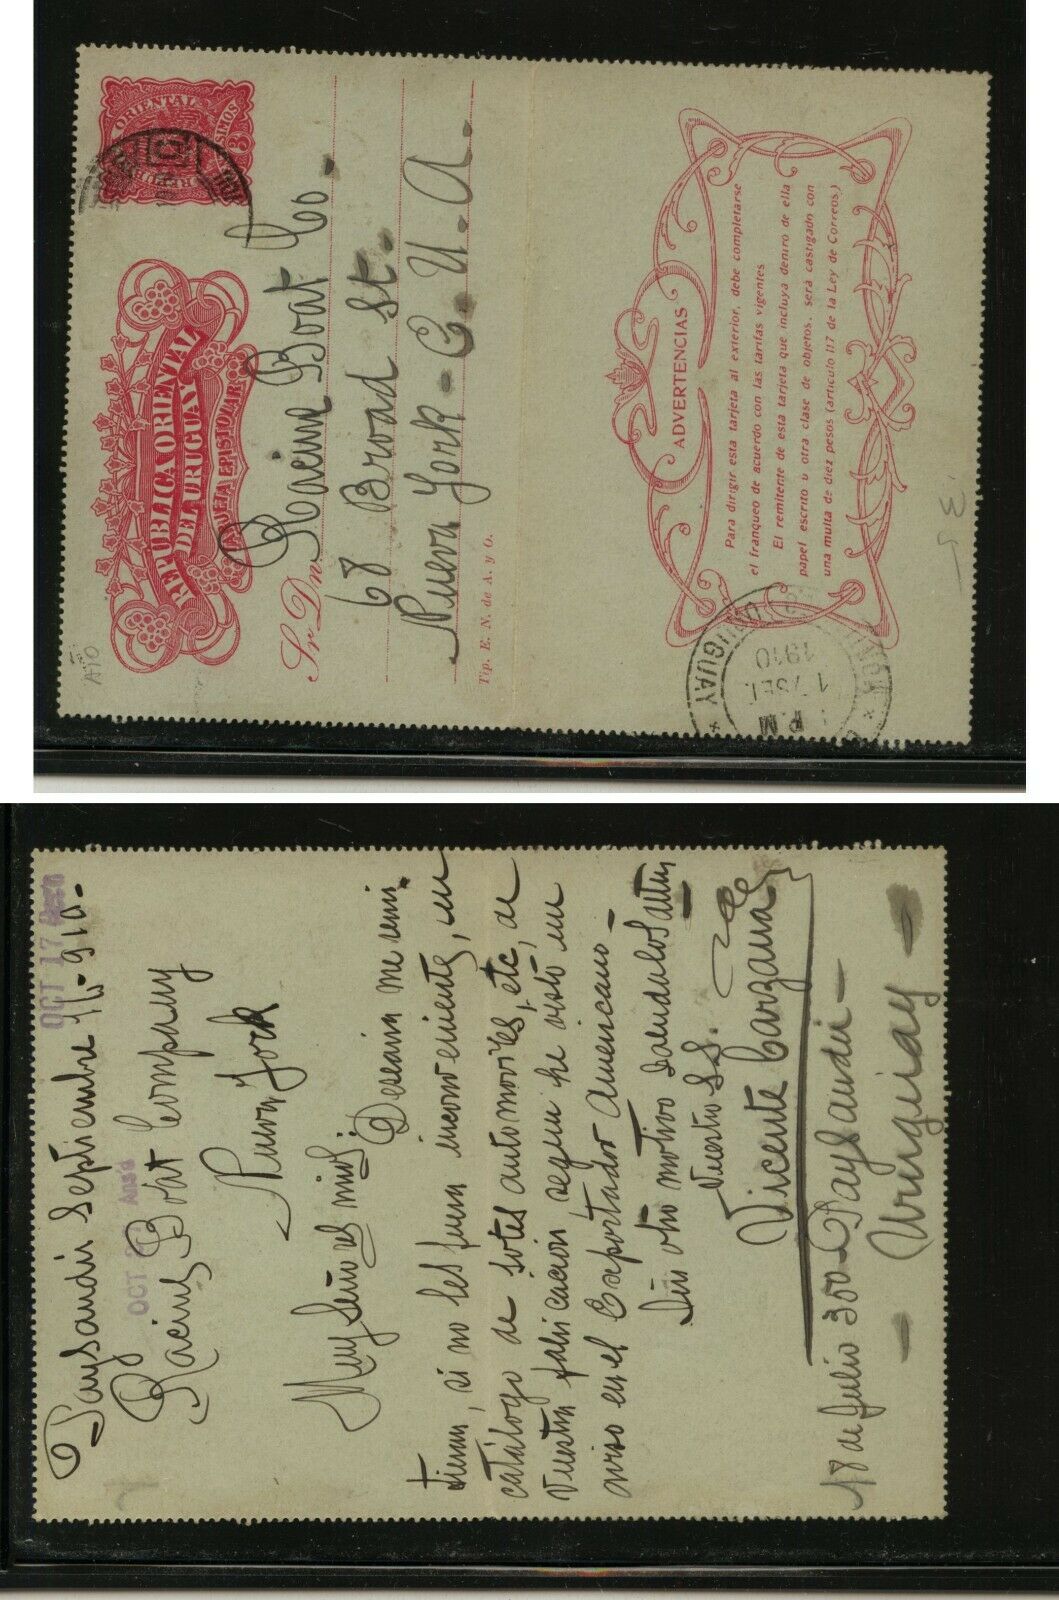 REPÚBLICA ORIENTAL
DEL URUGUAY
TARJETA EPISTOLAR
ORIENTAL
Sr. Dn. Racine Boat Co.
68 Broad St.
Nueva York - E. U. A.
Tip. E. N. de A. y O.
ADVERTENCIAS
Para dirigir esta tarjeta al exterior, debe completarse
el franqueo de acuerdo con las tarifas vigentes
El remitente de esta tarjeta que incluya dentro de ella
papel escrito u otra clase de objetos, será castigado con
una multa de diez pesos (artículo 117 de la Ley de Correos.)
P.M
17 SET.
1910
URUGUAY
OCT 17
Paysandú Septiembre 910-
OCT Ans'd
Racine Boat Company
Nueva York
Muy Señores mios:
Desearia me remi-
tieran, si no les fuera inconveniente, un
catálogo de botes automoviles, etc, de
vuestra fabricación, segun he visto un
aviso en el Exportador Americano-
Sin otro motivo saludalos attm
Vuesto S.S.
Vicente Carzana
18 de Julio 300 Paysandú-
- Uruguay -